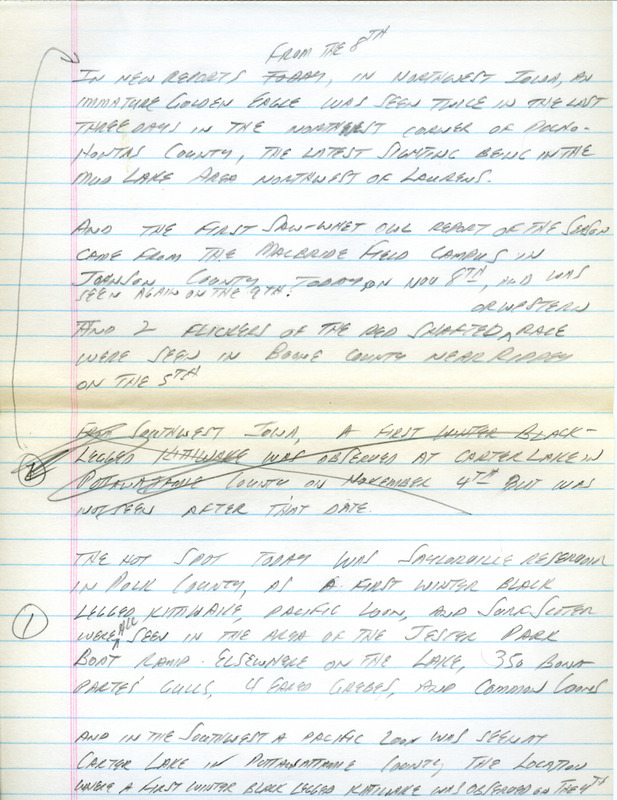 FROM THE 8TH
IN NEW REPORTS TODAY, IN NORTHWEST IOWA, AN
IMMATURE GOLDEN EAGLE WAS SEEN TWICE IN THE LAST
THREE DAYS IN THE NORTHWEST CORNER OF POCHO-
HONTAS COUNTY, THE LATEST SIGHTING BEING IN THE
MUD LAKE AREA NORTHWEST OF LAURENS.
AND THE FIRST SAW-WHET OWL REPORT OF THE SEASON
CAME FROM THE MACBRIDE FIELD CAMPUS IN
JOHNSON COUNTY TODAY ON NOV 8TH, AND WAS
SEEN AGAIN ON THE 9TH.
OR WESTERN
AND 2 FLICKERS OF THE RED SHAFTED RACE
WERE SEEN IN BOONE COUNTY NEAR RIPPEY
ON THE 5TH
SOUTHWEST IOWA, A FIRST WINTER BLACK-
LEGGED KITTIWAKE WAS OBSERVED AT CARTER LAKE IN
POTTAWATTAMIE COUNTY ON NOVEMBER 4TH BUT WAS
NOT SEEN AFTER THAT DATE.
THE HOT SPOT TODAY WAS SAYLORVILLE RESERVOIR
IN POLK COUNTY, AS A FIRST WINTER BLACK
LEGGED KITTIWAKE, PACIFIC LOON, AND SURF SCOTER
1 WERE ALL SEEN IN THE AREA OF THE JESTER PARK
BOAT RAMP. ELSEWHERE ON THE LAKE, 350 BONA-
PARTES' GULLS, 4 EARED GREBES, AND COMMON LOONS
AND IN THE SOUTHWEST A PACIFIC LOON WAS SEEN AT
CARTER LAKE IN POTTAWATTAMIE COUNTY, THE LOCATION
WHERE A FIRST WINTER BLACK LEGGED KITTIWAKE WAS OBSERVED ON THE 4TH